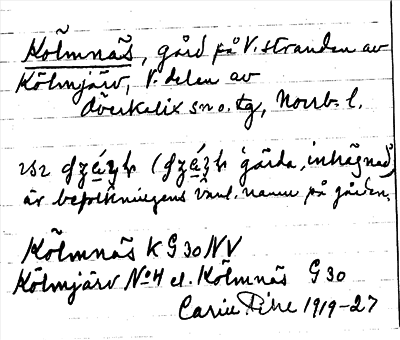 Kölmnäs, gård på V. stranden av
Kölmjärv, V. delen av
Överkalix sn o. tg, Norrb. l.
gärda, inhägnad)
är befolkningens vanl. namn på gården.
Kölmnäs K G 30 NV
Kölmjärv No 4 el. Kölmnäs G 30
Carin Pihl 1919-27